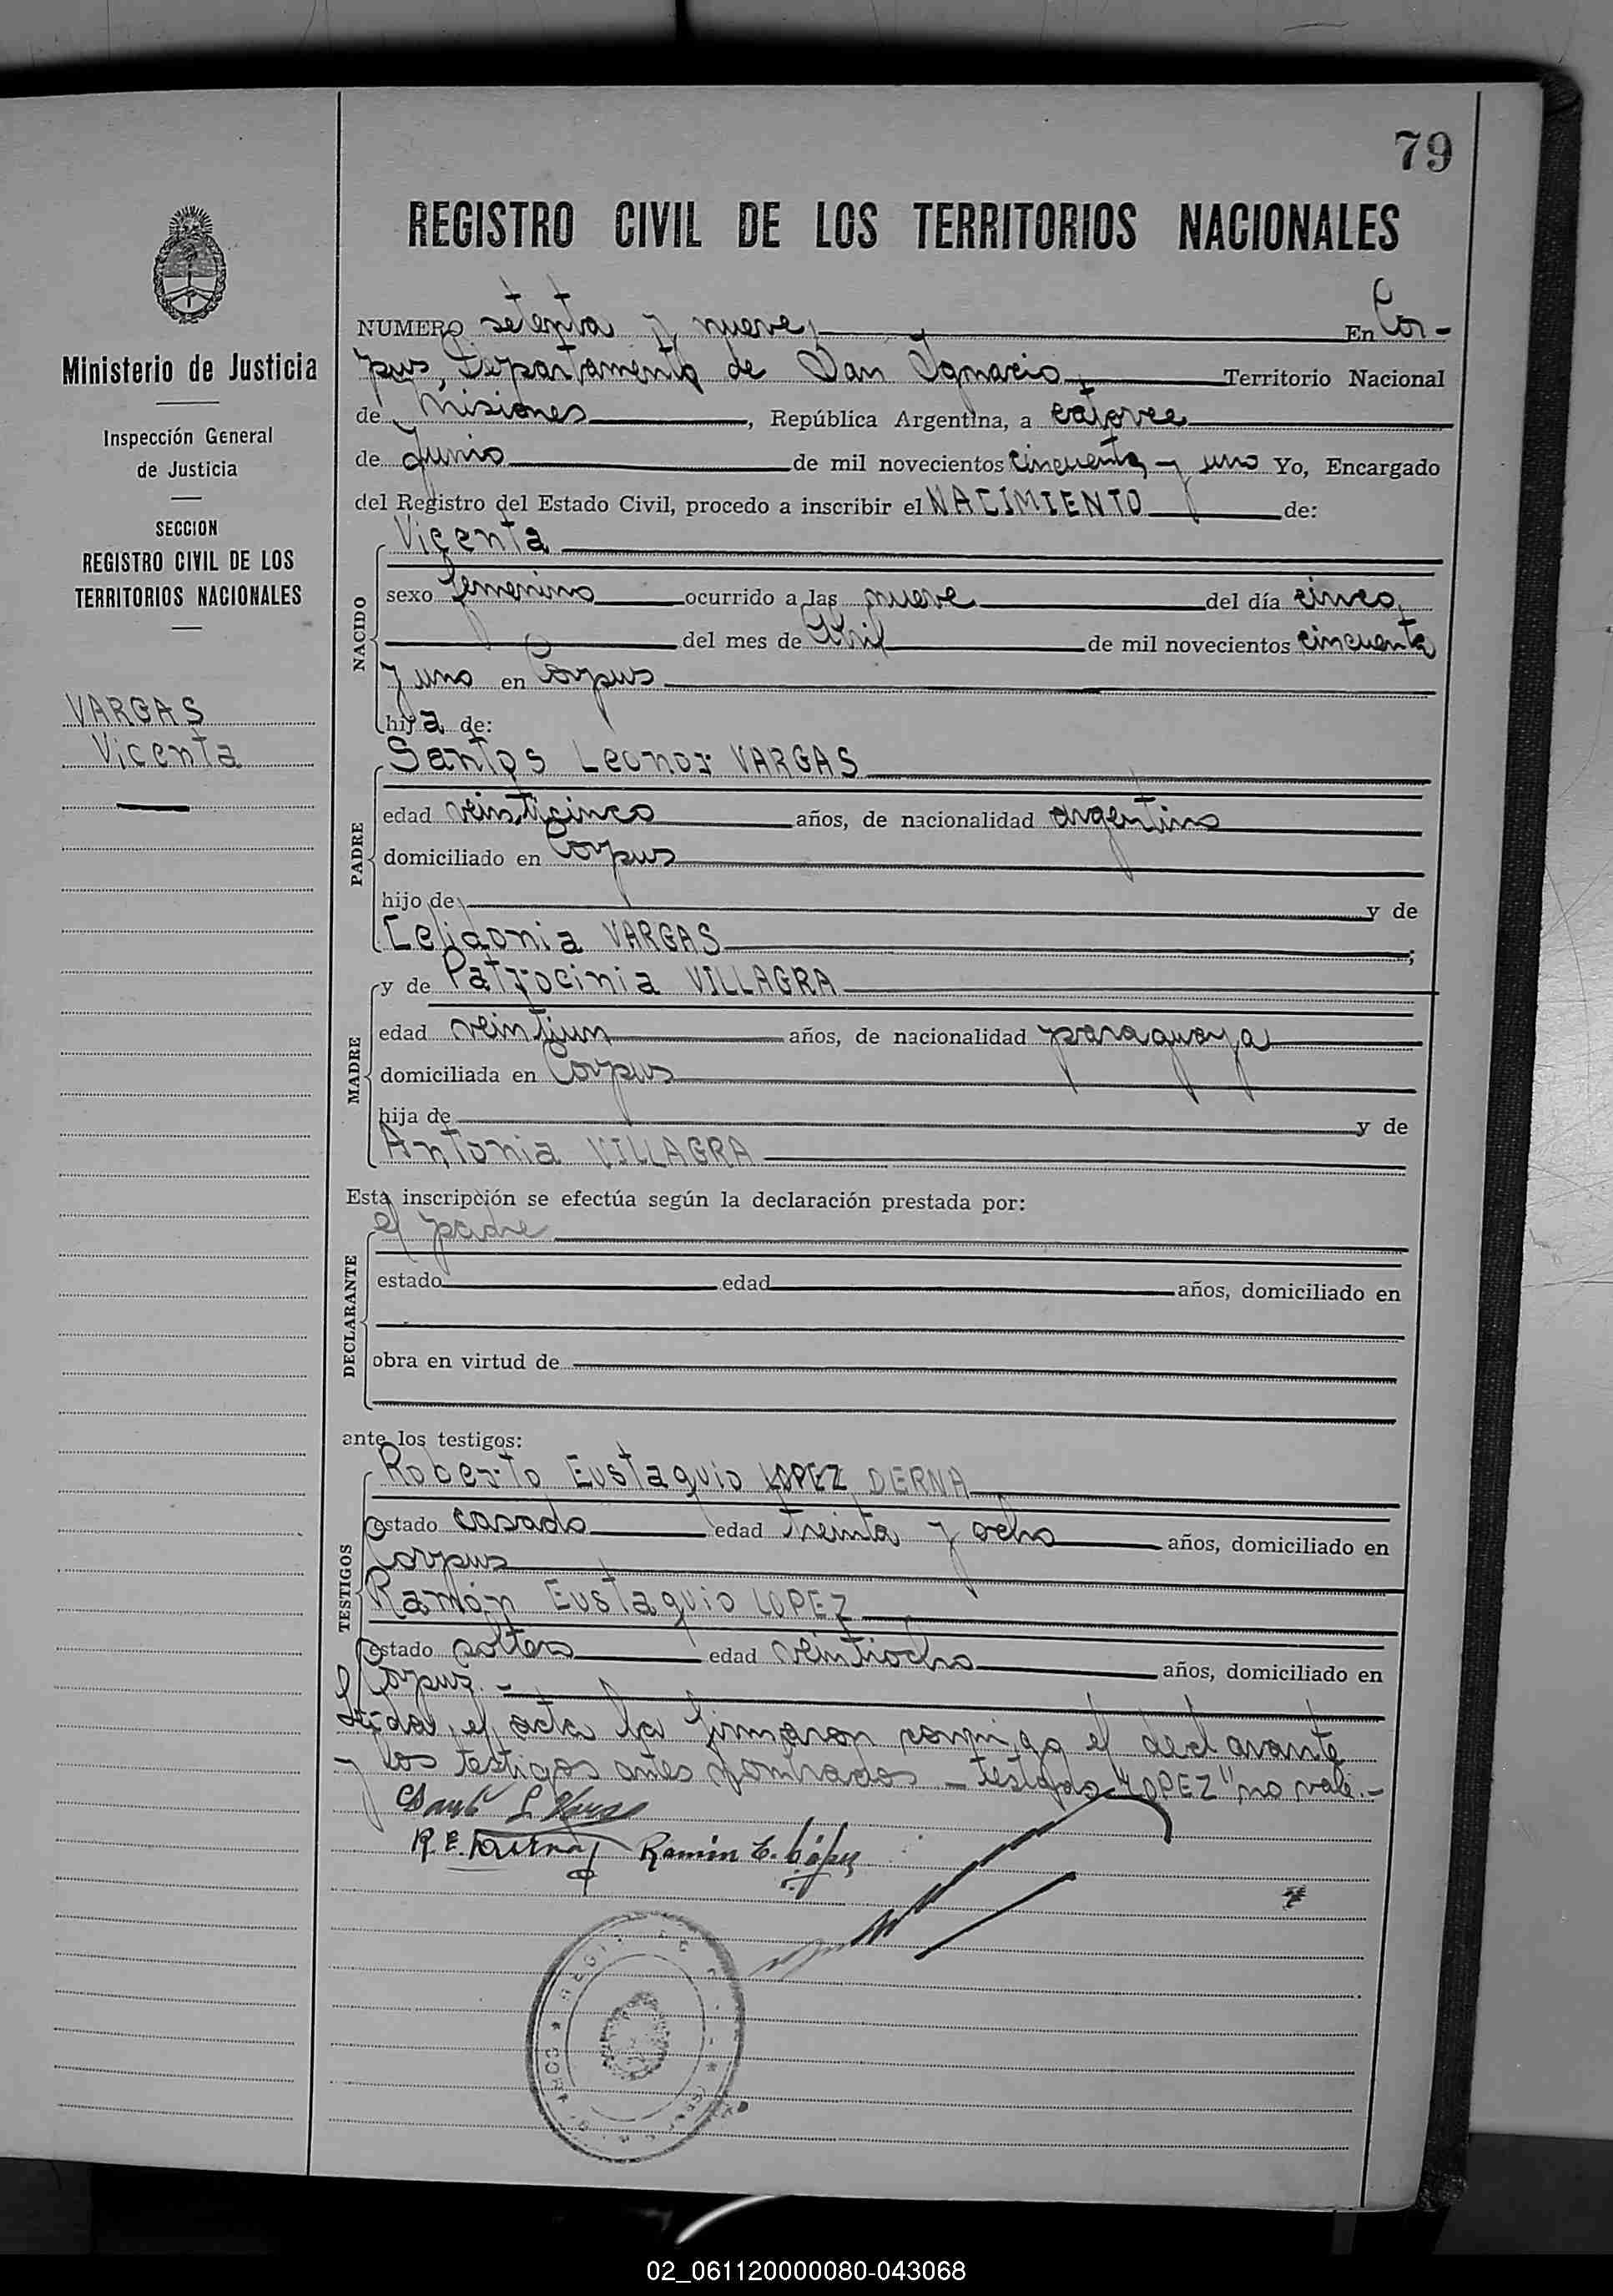 79
REGISTRO CIVIL DE LOS TERRITORIOS NACIONALES
Ministerio de Justicia
Inspección General
de Justicia
SECCION
REGISTRO CIVIL DE LOS
TERRITORIOS NACIONALES
VARGAS
Vicenta
NUMERO setenta y nueve, En Cor-
pus, Departamento de San Ignacio, Territorio Nacional
de Misiones, República Argentina, a catorce
de Junio de mil novecientos cincuenta y uno Yo, Encargado
del Registro del Estado Civil, procedo a inscribir el NACIMIENTO de:
NACIDO
Vicenta
sexo femenino ocurrido a las nueve del día cinco,
del mes de Abril de mil novecientos cincuenta
y uno en Corpus
hija de:
PADRE
Santos Leonor VARGAS
edad veinticinco años, de nacionalidad argentino
domiciliado en Corpus
hijo de y de
Celidonia VARGAS;
MADRE
y de Patrocinia VILLAGRA
edad veintiun años, de nacionalidad paraguaya
domiciliada en Corpus
hija de y de
Antonia VILLAGRA
Esta inscripción se efectúa según la declaración prestada por:
DECLARANTE
el padre
estado edad años, domiciliado en
obra en virtud de
ante los testigos:
TESTIGOS
Roberto Eustaquio LOPEZ DERNA
estado casado edad treinta y ocho años, domiciliado en
Corpus
Ramón Eustaquio LOPEZ
estado soltero edad veintiocho años, domiciliado en
Corpus.-
Leida el acta la firmaron conmigo el declarante
y los testigos antes nombrados - testado "LOPEZ" no vale.-
Ramón E. López
02_061120000080-043068